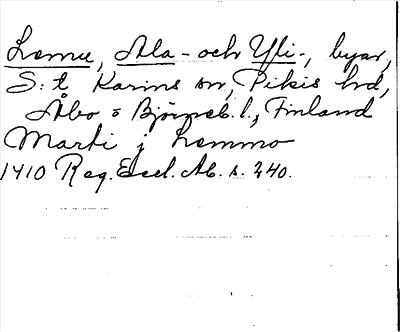 Lemu, Ala- och Yli-, byar,
S:t Karins sn, Pikis hd,
Åbo o Björneb. l., Finland
Marti j Lemmo
1410 Reg. Eccl. Ab. s. 240.